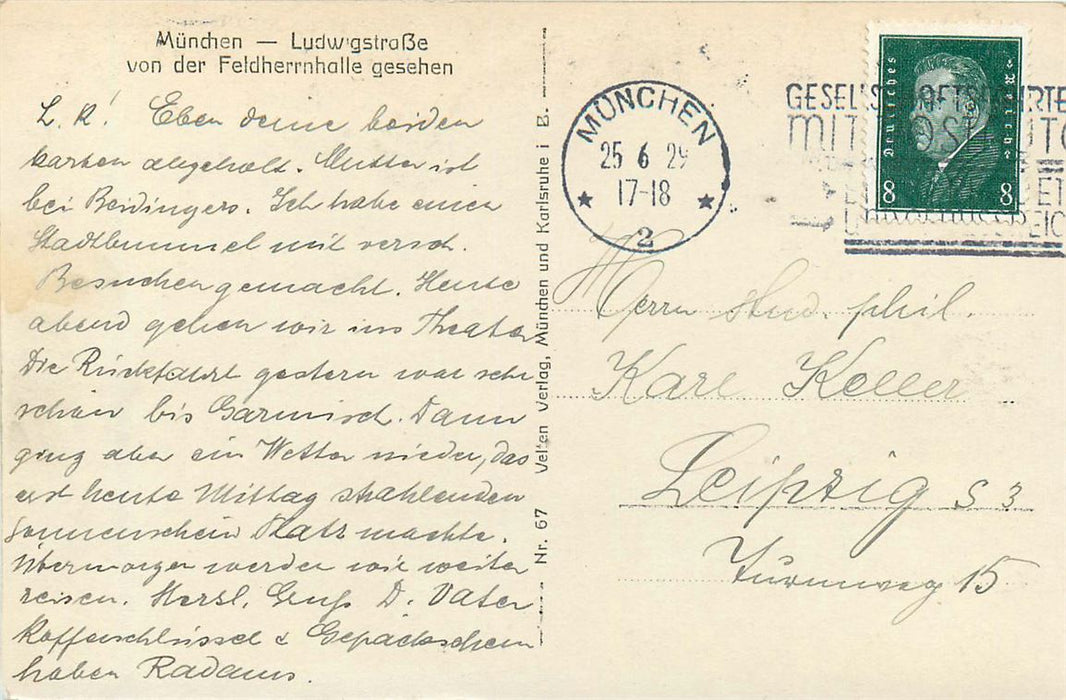 München — Ludwigstraße
von der Feldherrnhalle gesehen
L. K! Eben deine beiden
Karten abgeholt. Mutter ist
bei Beidingers. Ich habe einen
Stadtbummel mit versch.
Besuchen gemacht. Heute
abend gehen wir ins Theater
Die Rückfahrt gestern war sehr
schön bis Garmisch. Dann
ging aber ein Wetter nieder, das
erst heute Mittag strahlenden
Sonnenschein Platz machte.
Übermorgen werden wir weiter
reisen. Herzl. Gruß D. Vater
Kofferschlüssel & Gepäckschein
haben Radams.
Nr. 67 Velten Verlag, München und Karlsruhe i B.
MÜNCHEN
25 6 29
17-18
2
GESELLSCHAFTSFAHRTE
MIT POSTAUTO
Deutsches Reich
8 8
Herrn stud. phil.
Karl Keller
Leipzig S 3
Turmweg 15